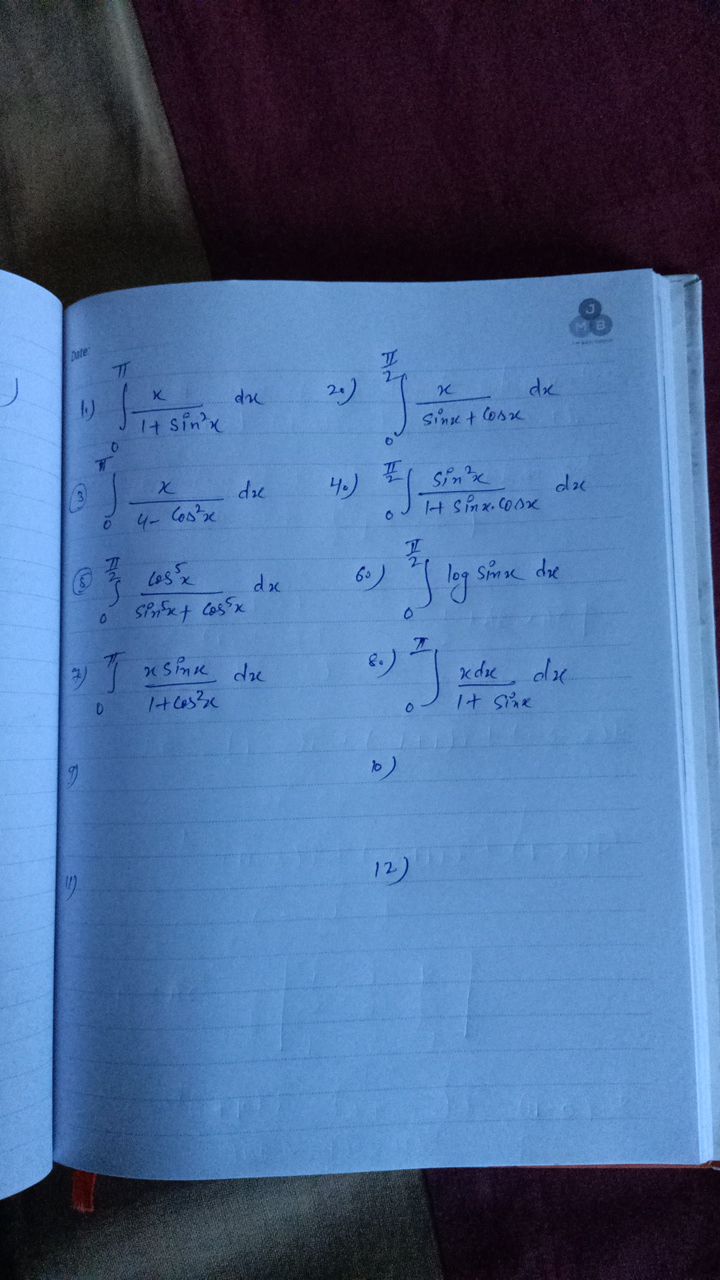 J
M B
Date:
1.) ∫₀^π x/(1 + sin²x) dx 2.) ∫₀^(π/2) x/(sinx + cosx) dx
3 ∫₀^π x/(4 - cos²x) dx 4.) ∫₀^(π/2) sin²x/(1 + sinx.cosx) dx
5 ∫₀^(π/2) cos⁵x/(sin⁵x + cos⁵x) dx 6.) ∫₀^(π/2) log sinx dx
7) ∫₀^π x sinx/(1 + cos²x) dx 8.) ∫₀^π xdx/(1 + sinx) dx
9) 10)
11) 12)